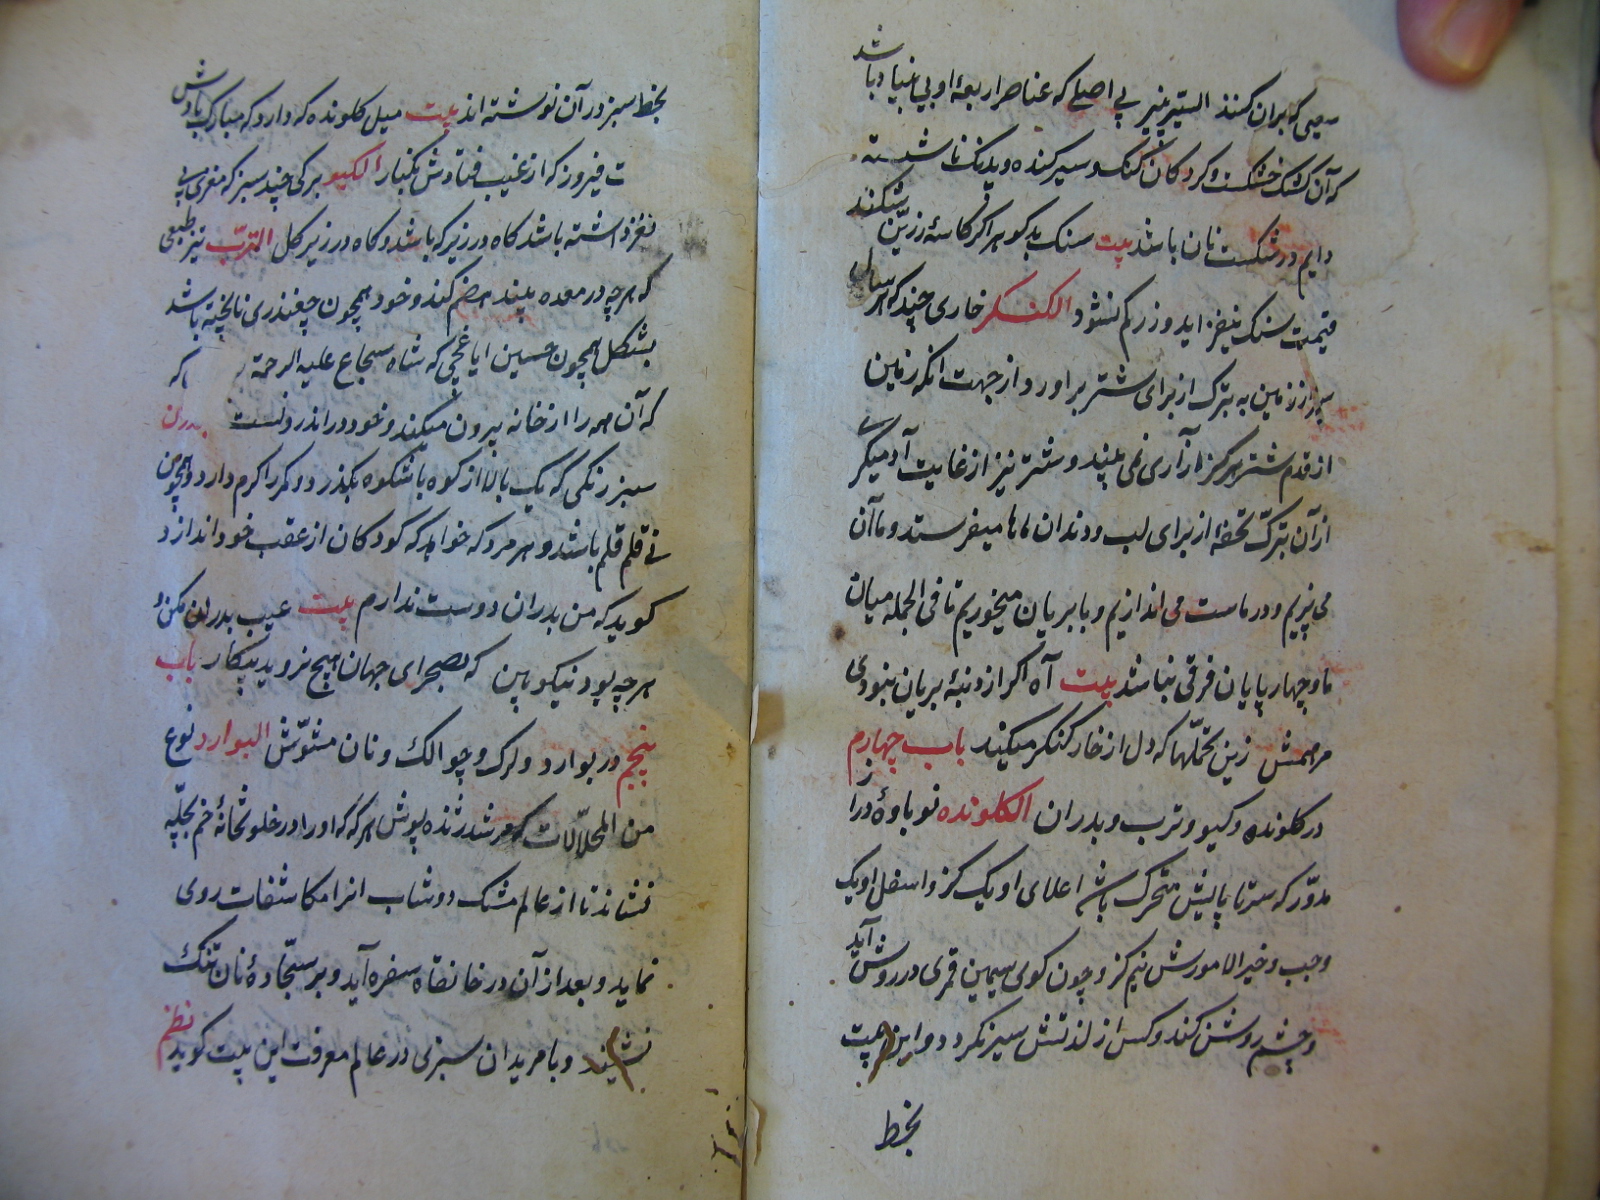 سعی که بران کنند السیر پنیر بی اصلی که عناصر اربعهٔ او بی بنیاد باشد
که آن کشک خشکست و کرد کان کنک و سیر کنده و بدنک ناشسته
دایم در شکست نان باشد بیت سنک بد کوهر اگر کاسهٔ زرین شکند
قیمت سنک نیفزاید و زر کم نشود الکنکر خاری چند که هر سال
سر از زمین به تبرک از برای شتر براورد و از جهت انکه زمین
از قدم شتر هرگز ازاری نمی بیند و شتر نیز از غایت آدمیگری
از آن تبرک تحفهٔ از برای لب و دندان ماها میفرستد و ما آن
می پزیم و در ماست می اندازیم و با بریان میخوریم تا فی الجمله میان
ما و چهارپایان فرقی نباشد بیت آه اگر از دنبهٔ بریان نبودی
مرهمش زین تحملها که دل از خار کنکر میکند باب چهارم
در کلونده و کیو و ترب و بدران الکلونده نوباوهٔ دراز
مدور که سر تا پایش متحرک باشد اعلای او یک کز و اسفل او یک
وجب و خیر الامورش نیم کز و چون کوی سیمین قمری در روش آید
و چشم روشن کند و کس از لذتش سیر نکردد و این بیت
بخط
بخط سبز در آن نوشته اند بیت میل کلونده که دارد که مبارک بادش
ت فیروز که از غیب فتادش بکنار الکیو برکی چند سبز که مغزی بی
نغز داشته باشد کاه در زیر که باشد و کاه در زیر کل الترب تیز طبعی
که هرچه در معده بیند هضم کند و خود همچون چغندری ناپخته باشد
بشکل همچون حسین ایاغچی که شاه سجاع علیه الرحمة که
که آن همه را از خانه بیرون میکند و خود در اندرونست بدران
سبز رنکی که یک بالا از کوه باشکوه بگذرد و کمر را کرم دارد و همچون
نی قلم قلم باشد و هر مرد که خواهد که کودکان از عقب خود اندازد
کوید که من بدران دوست ندارم بیت عیب بدران مکن و
هرچه بود نیکو بین که بصحرای جهان هیچ نروید بیکار باب
پنجم در بوارد و لرک و چوالک و نان مشوش البوارد نوع
من المحلالات که مرشد ژنده پوش هرکه که او را در خلوتخانهٔ خم بچله
نشاندند تا از عالم مشک دوشاب انرا مکاشفات روی
نماید و بعد از آن در خانقاه سفره آید و بر سجادهٔ نان تنک
نشیند و با مریدان سبزی در عالم معرفت این بیت کوید نظم